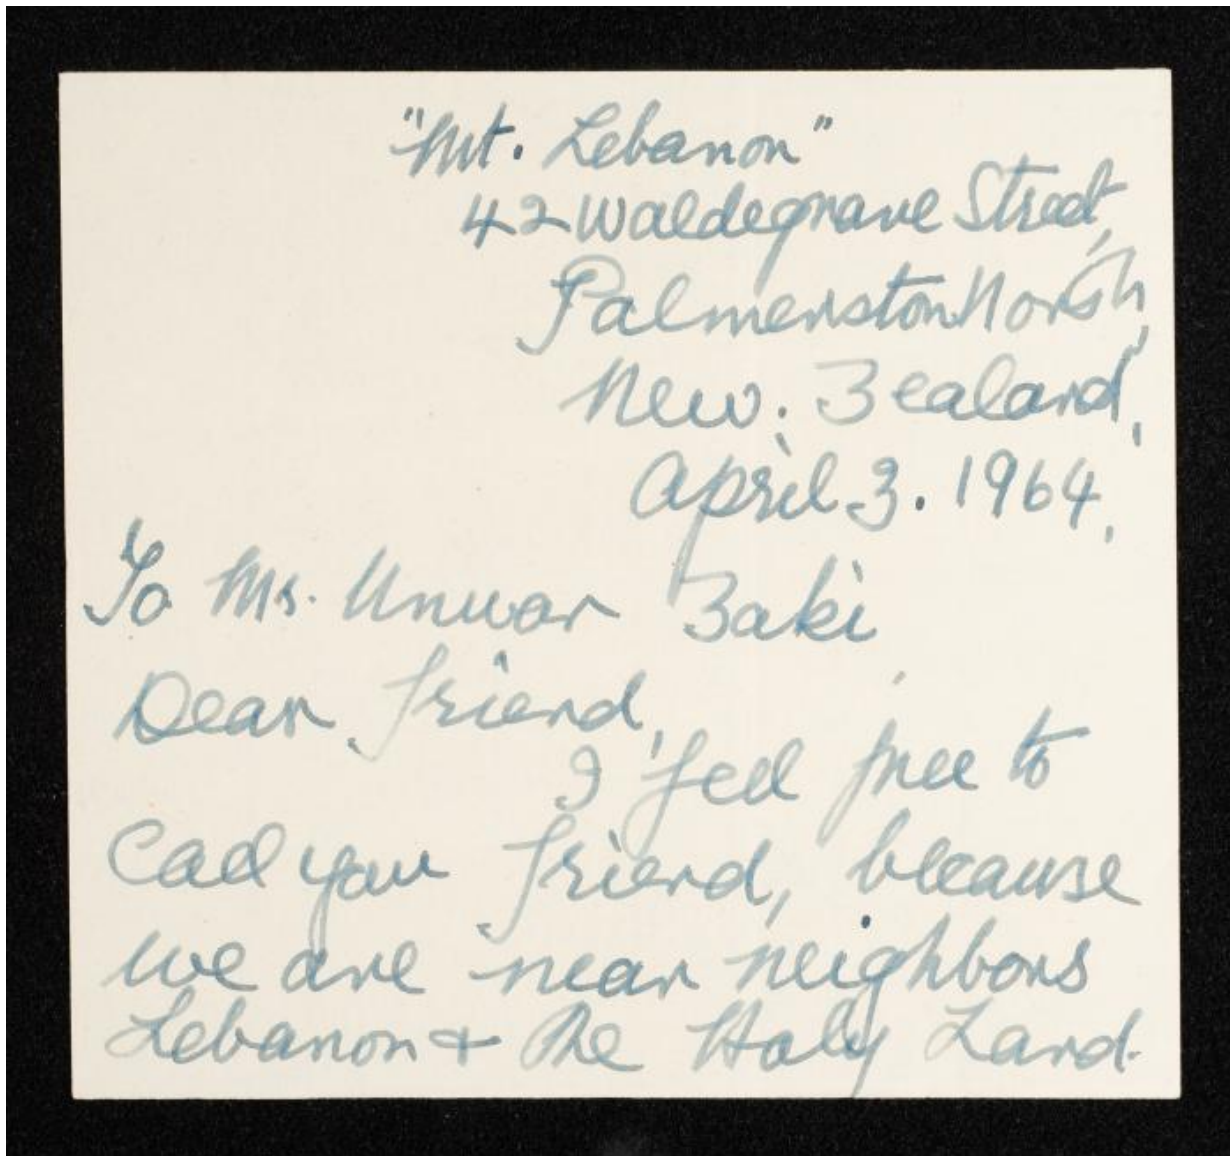 "Mt. Lebanon"
42 Waldegrave Street,
Palmerston North,
New. Zealand,
April. 3. 1964,
To Mr. Unwar Zaki
Dear friend,
I feel free to
Call you friend, because
we are near neighbors
Lebanon + the Holy Land.